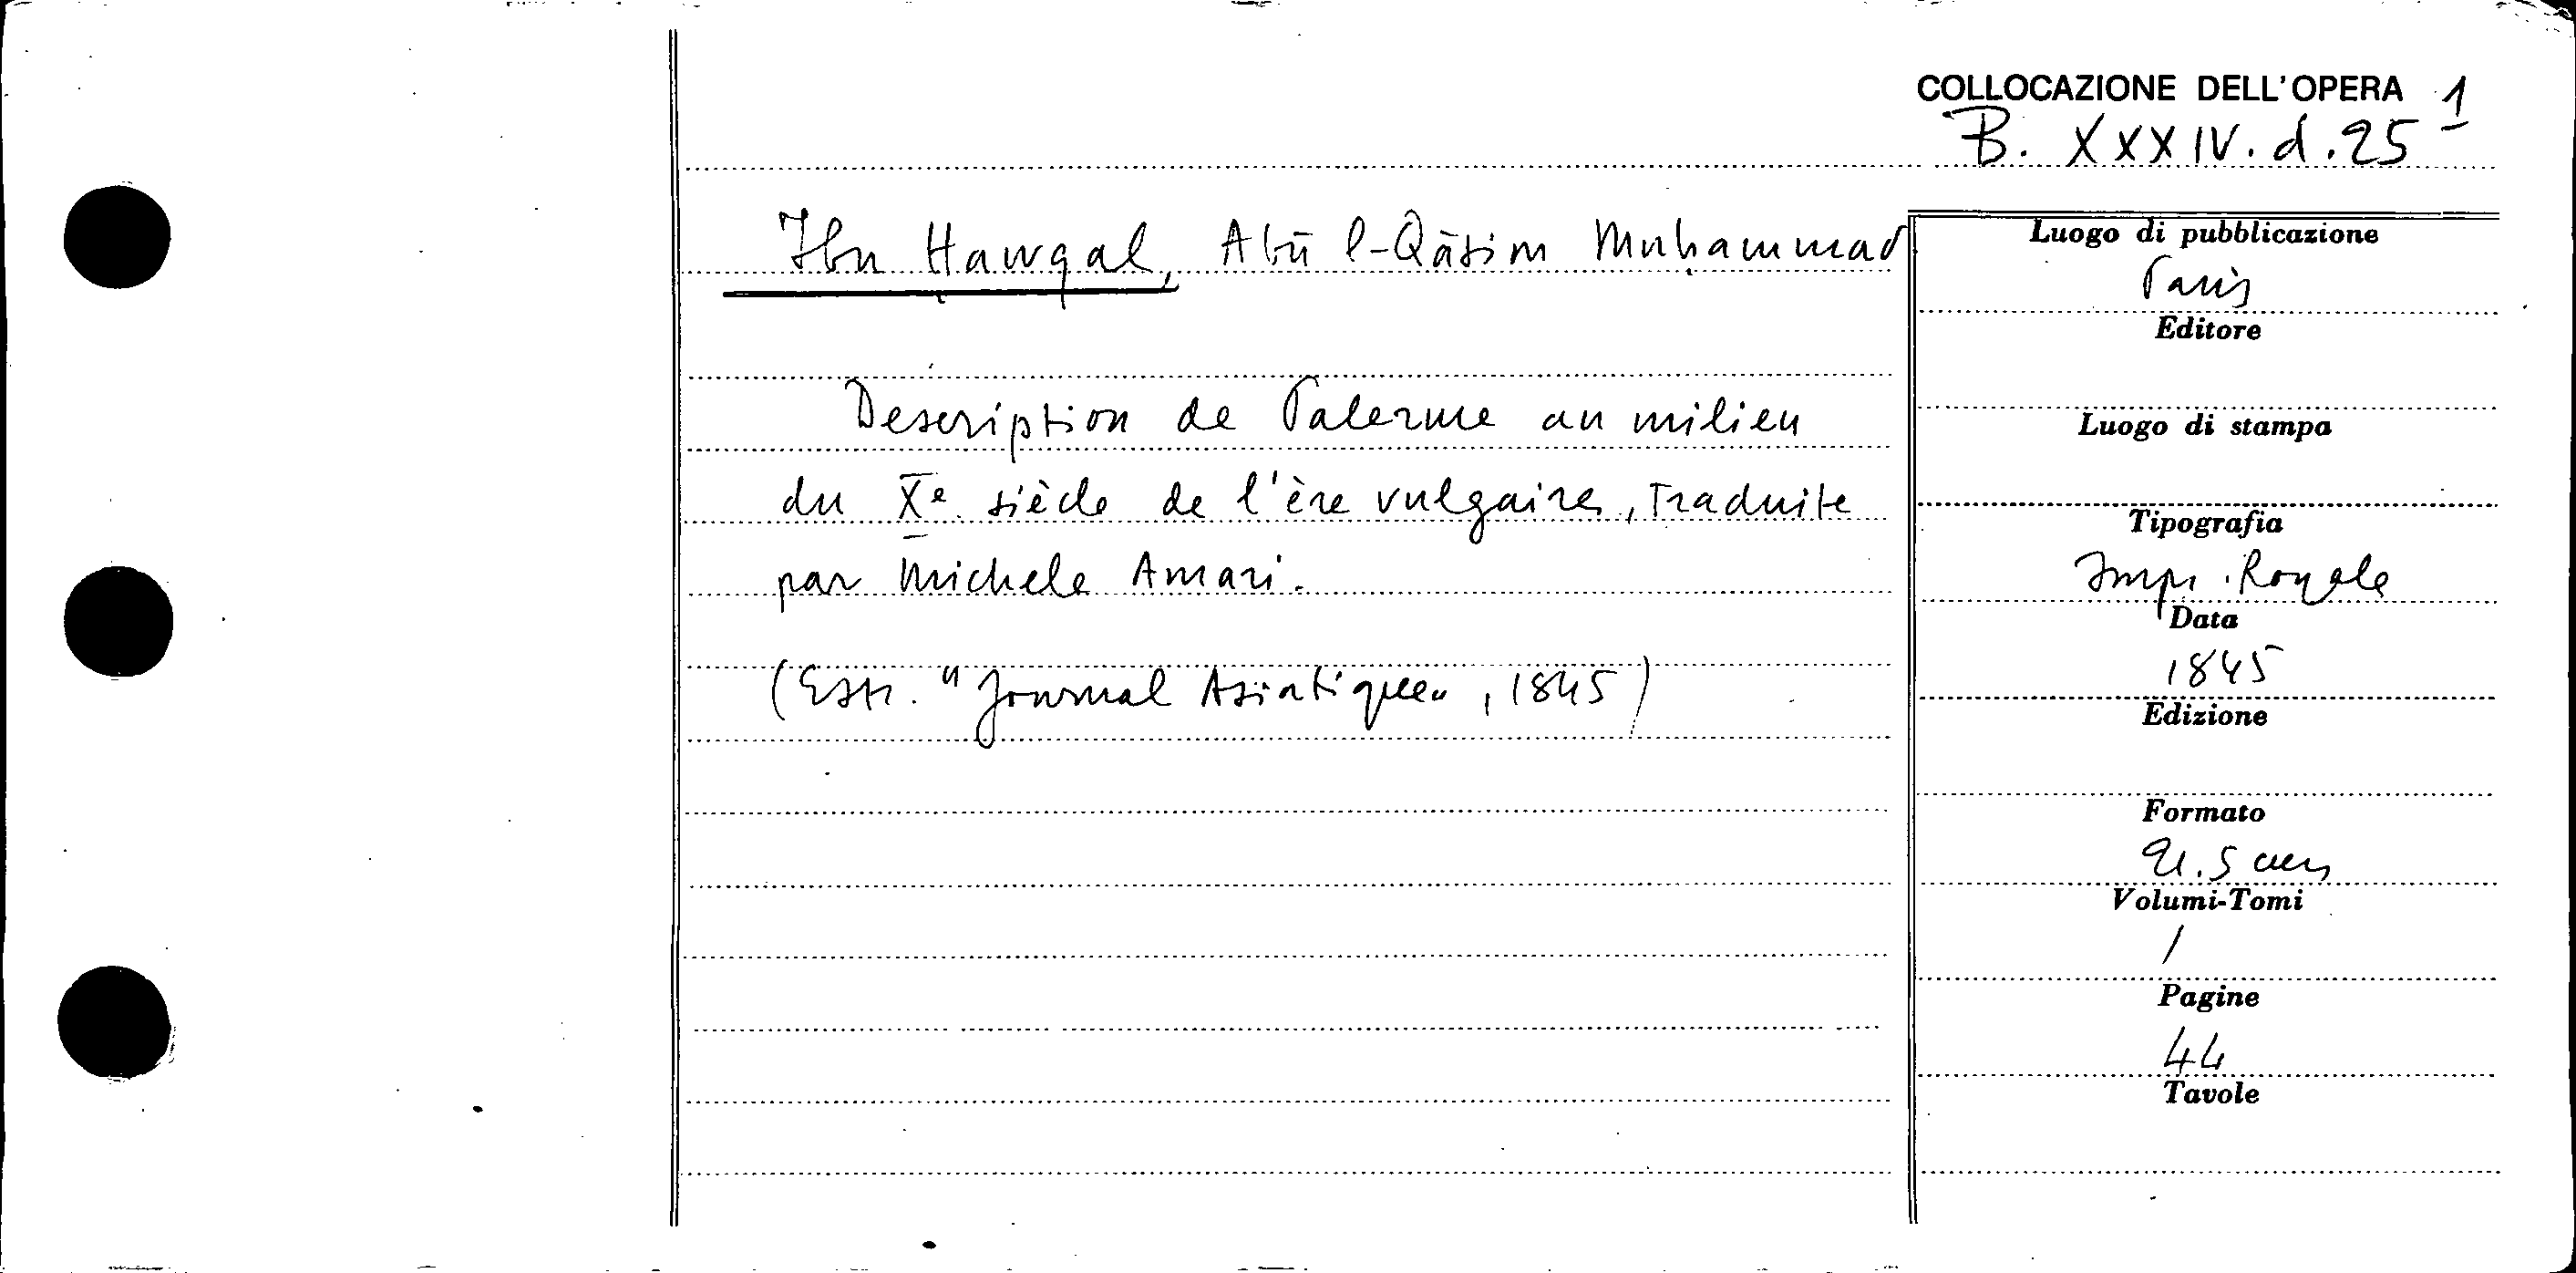 COLLOCAZIONE DELL'OPERA 1
B. XXXIV. d. 25
Ibn Hawqal, Abū l-Qāsim Muḥammad
Description de Palerme au milieu
du Xe siècle de l'ère vulgaire, traduite
par Michele Amari.
(Estr. "Journal Asiatique", 1845)
Luogo di pubblicazione
Paris
Editore
Luogo di stampa
Tipografia
Impr. Royale
Data
1845
Edizione
Formato
21.5 cm
Volumi-Tomi
1
Pagine
44
Tavole